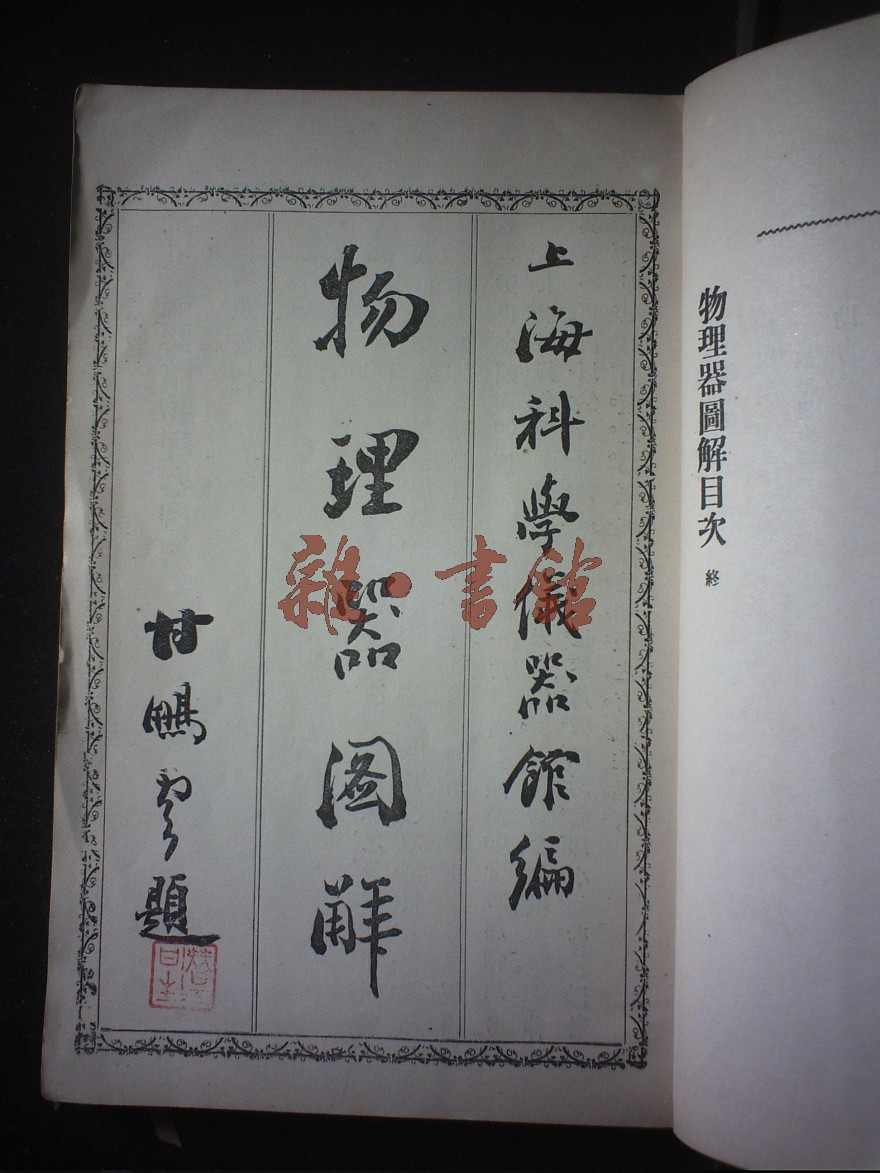 物理器圖解目次 終
上海科學儀器館編
物理器圖解
甘鵬雲題
雜·書館